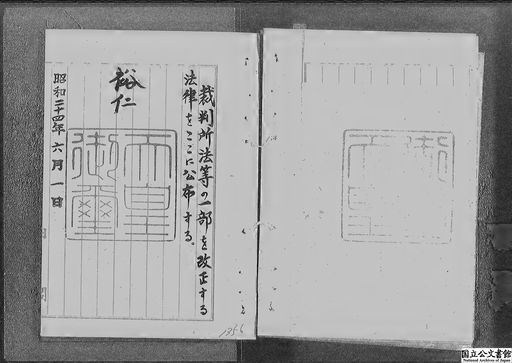 裁判所法等の一部を改正する
法律をここに公布する。
裕仁
天皇
御璽
昭和二十四年六月一日
1356
国立公文書館
National Archives of Japan